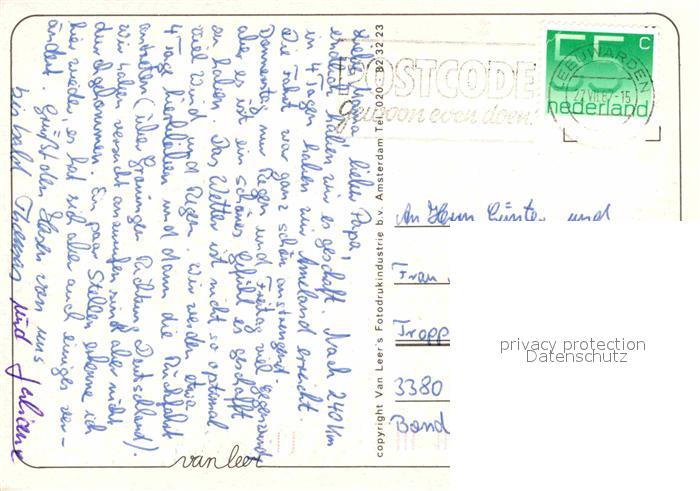 Liebe Mama, lieber Papa,
endlich haben wir es geschafft. Nach 240 km
in 4 Tagen haben wir Ameland erreicht.
Die Fahrt war ganz schön anstrengend.
Donnerstag nur Regen und Freitag viel Gegenwind
aber es ist ein schönes Gefühl es geschafft
zu haben. Das Wetter ist nicht so optimal
viel Wind und Regen. Wir werden etwa
4 Tage hierbleiben und dann die Rückfahrt
antreten (über Groningen Richtung Deutschland).
Wir haben versucht anzurufen sind aber nicht
durchgekommen. Ein paar Stellen erkenne ich
hier wieder, es hat sich aber auch einiges ver-
ändert. Grüßt den Hasen von uns
bis bald Thomas und Juliane
copyright Van Leer's Fotodrukindustrie b.v. Amsterdam Tel. 020 - 82 32 23
van leer
POSTCODE
gewoon even doen!
55 c
nederland
LEEUWARDEN
An Herrn Günter und
Frau
Tropp
3380
Band
privacy protection
Datenschutz